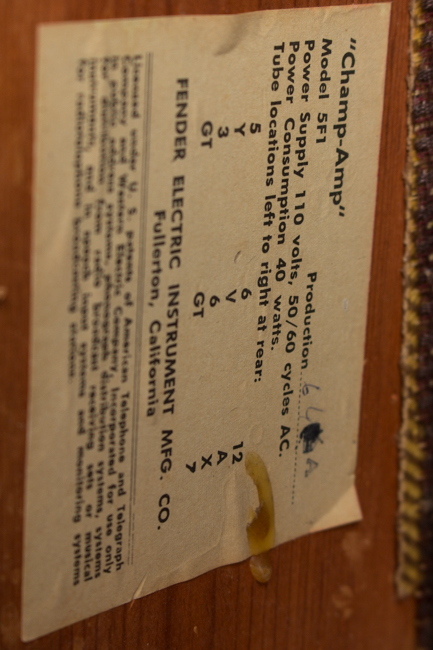 "Champ-Amp"
Model 5F1 Production
Power Supply 110 volts, 50/60 cycles AC.
Power Consumption 40 watts.
Tube locations left to right at rear:
5 6 12
Y V A
3 6 X
GT GT 7
FENDER ELECTRIC INSTRUMENT MFG. CO.
Fullerton, California
Licensed under U. S. patents of American Telephone and Telegraph
Company and Western Electric Company, Incorporated for use only
in public address systems, phonograph distribution systems, systems
from radio broadcast receiving sets or musical
instruments, and in speech input systems and monitoring systems
for radiotelephone broadcasting stations.